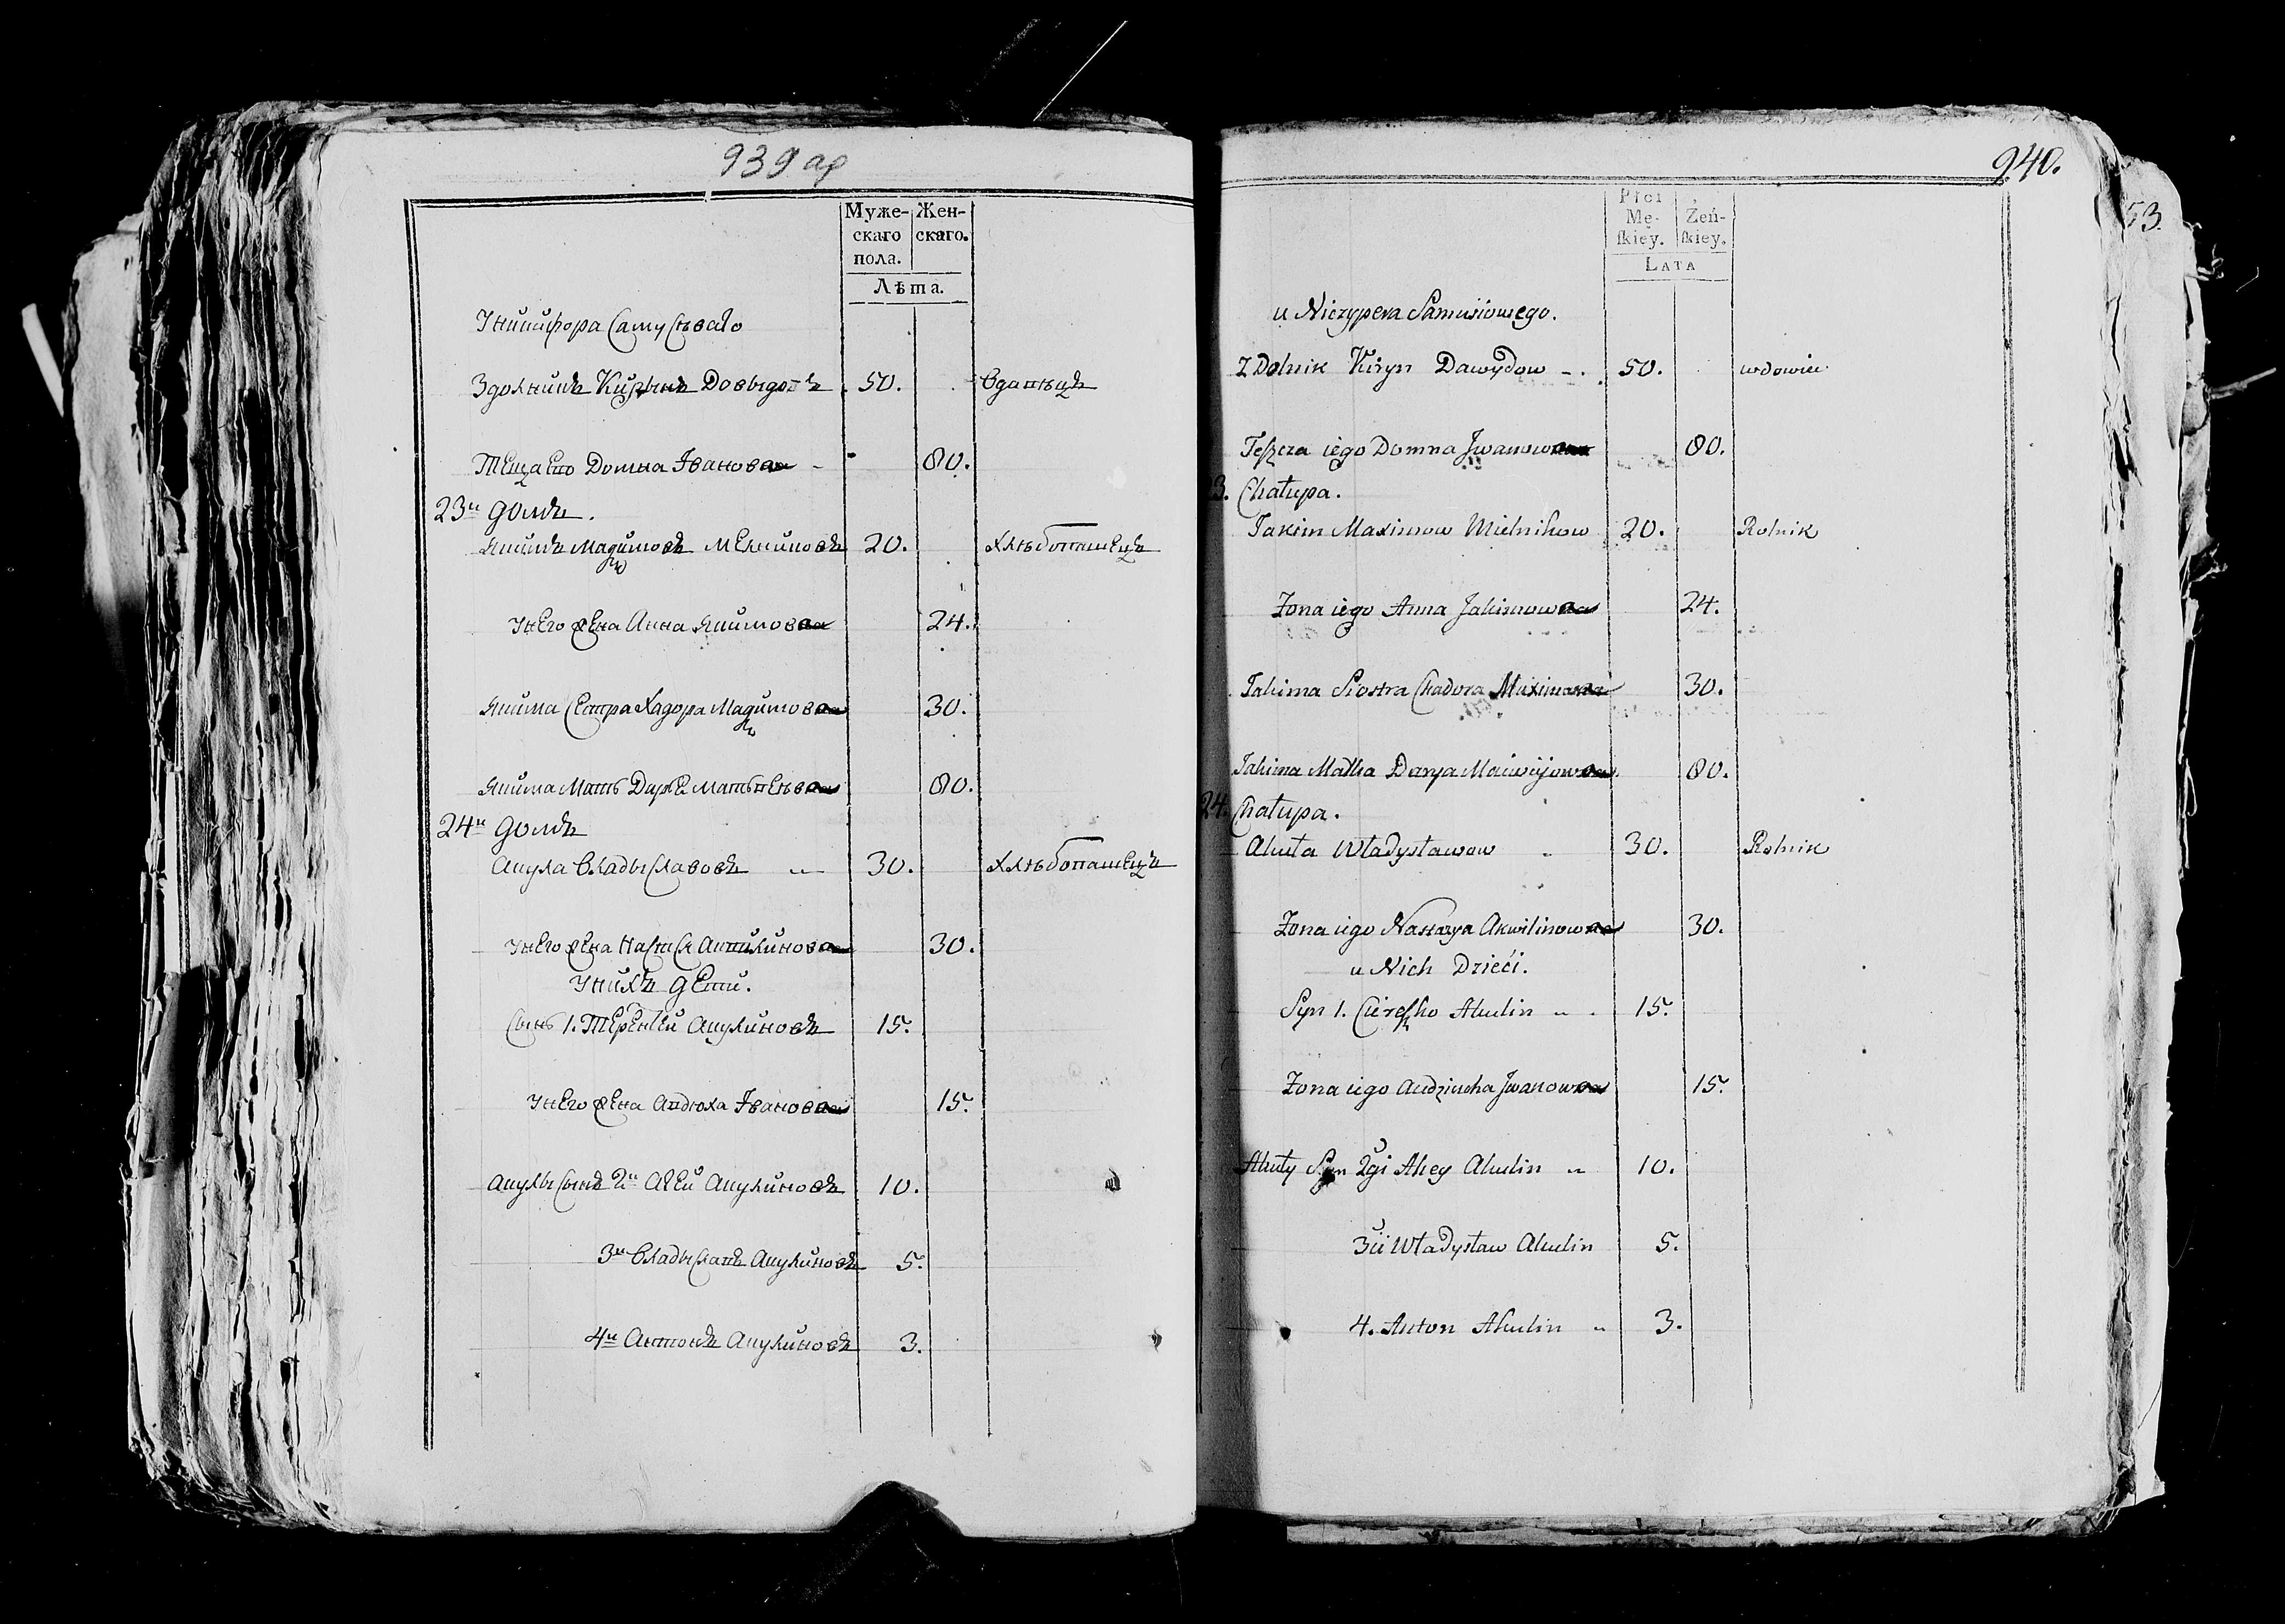 939 ар
Муже-
скаго
пола.
Жен-
скаго.
Лѣта.
Уникифора Самусѣваго
Здольникъ Кирынъ Довыдовъ 50. Вдовѣцъ
Теща Его Домна Іванова 80.
23й Домъ.
Якимъ Мадимовъ Мелниковъ 20. Хлѣбопашецъ
Унего жена Анна Якимова 24.
Якима Сестра Хадора Мадимова 30.
Якима Мать Дарья Матвѣева 80.
24й Домъ
Акула Владыславовъ 30. Хлѣбопашецъ
Унего жена Настася Аквилинова 30.
Унихъ Дети.
Сынъ 1. Терентей Акулиновъ 15.
Унего жена Авдюха Іванова 15.
Акулы Сынъ 2й Агей Акулиновъ 10.
3й Владыславъ Акулиновъ 5.
4й Антонъ Акулиновъ 3.
940.
53.
Płci
Mę-
ſkiey.
Zeń-
ſkiey.
LATA
u Niczypera Samusiowego.
Zdolnik Kiryn Dawydow 50. wdowiec
Teſzcza iego Domna Jwanowna 80.
23. Chałupa.
Jakim Maximow Mielnikow 20. Rolnik
Zona iego Anna Jakimowna 24.
Jakima Siostra Chadora Maximowna 30.
Jakima Matka Darya Maciejowna 80.
24. Chałupa.
Akuła Władysławow 30. Rolnik
Zona iego Nastazya Akwilinowna 30.
u Nich Dzieći.
Syn 1. Cireſzko Akulin 15.
Zona iego Audziucha Jwanowna 15.
Akuły Syn 2gi Ahey Akulin 10.
3ci Władysław Akulin 5.
4. Anton Akulin 3.